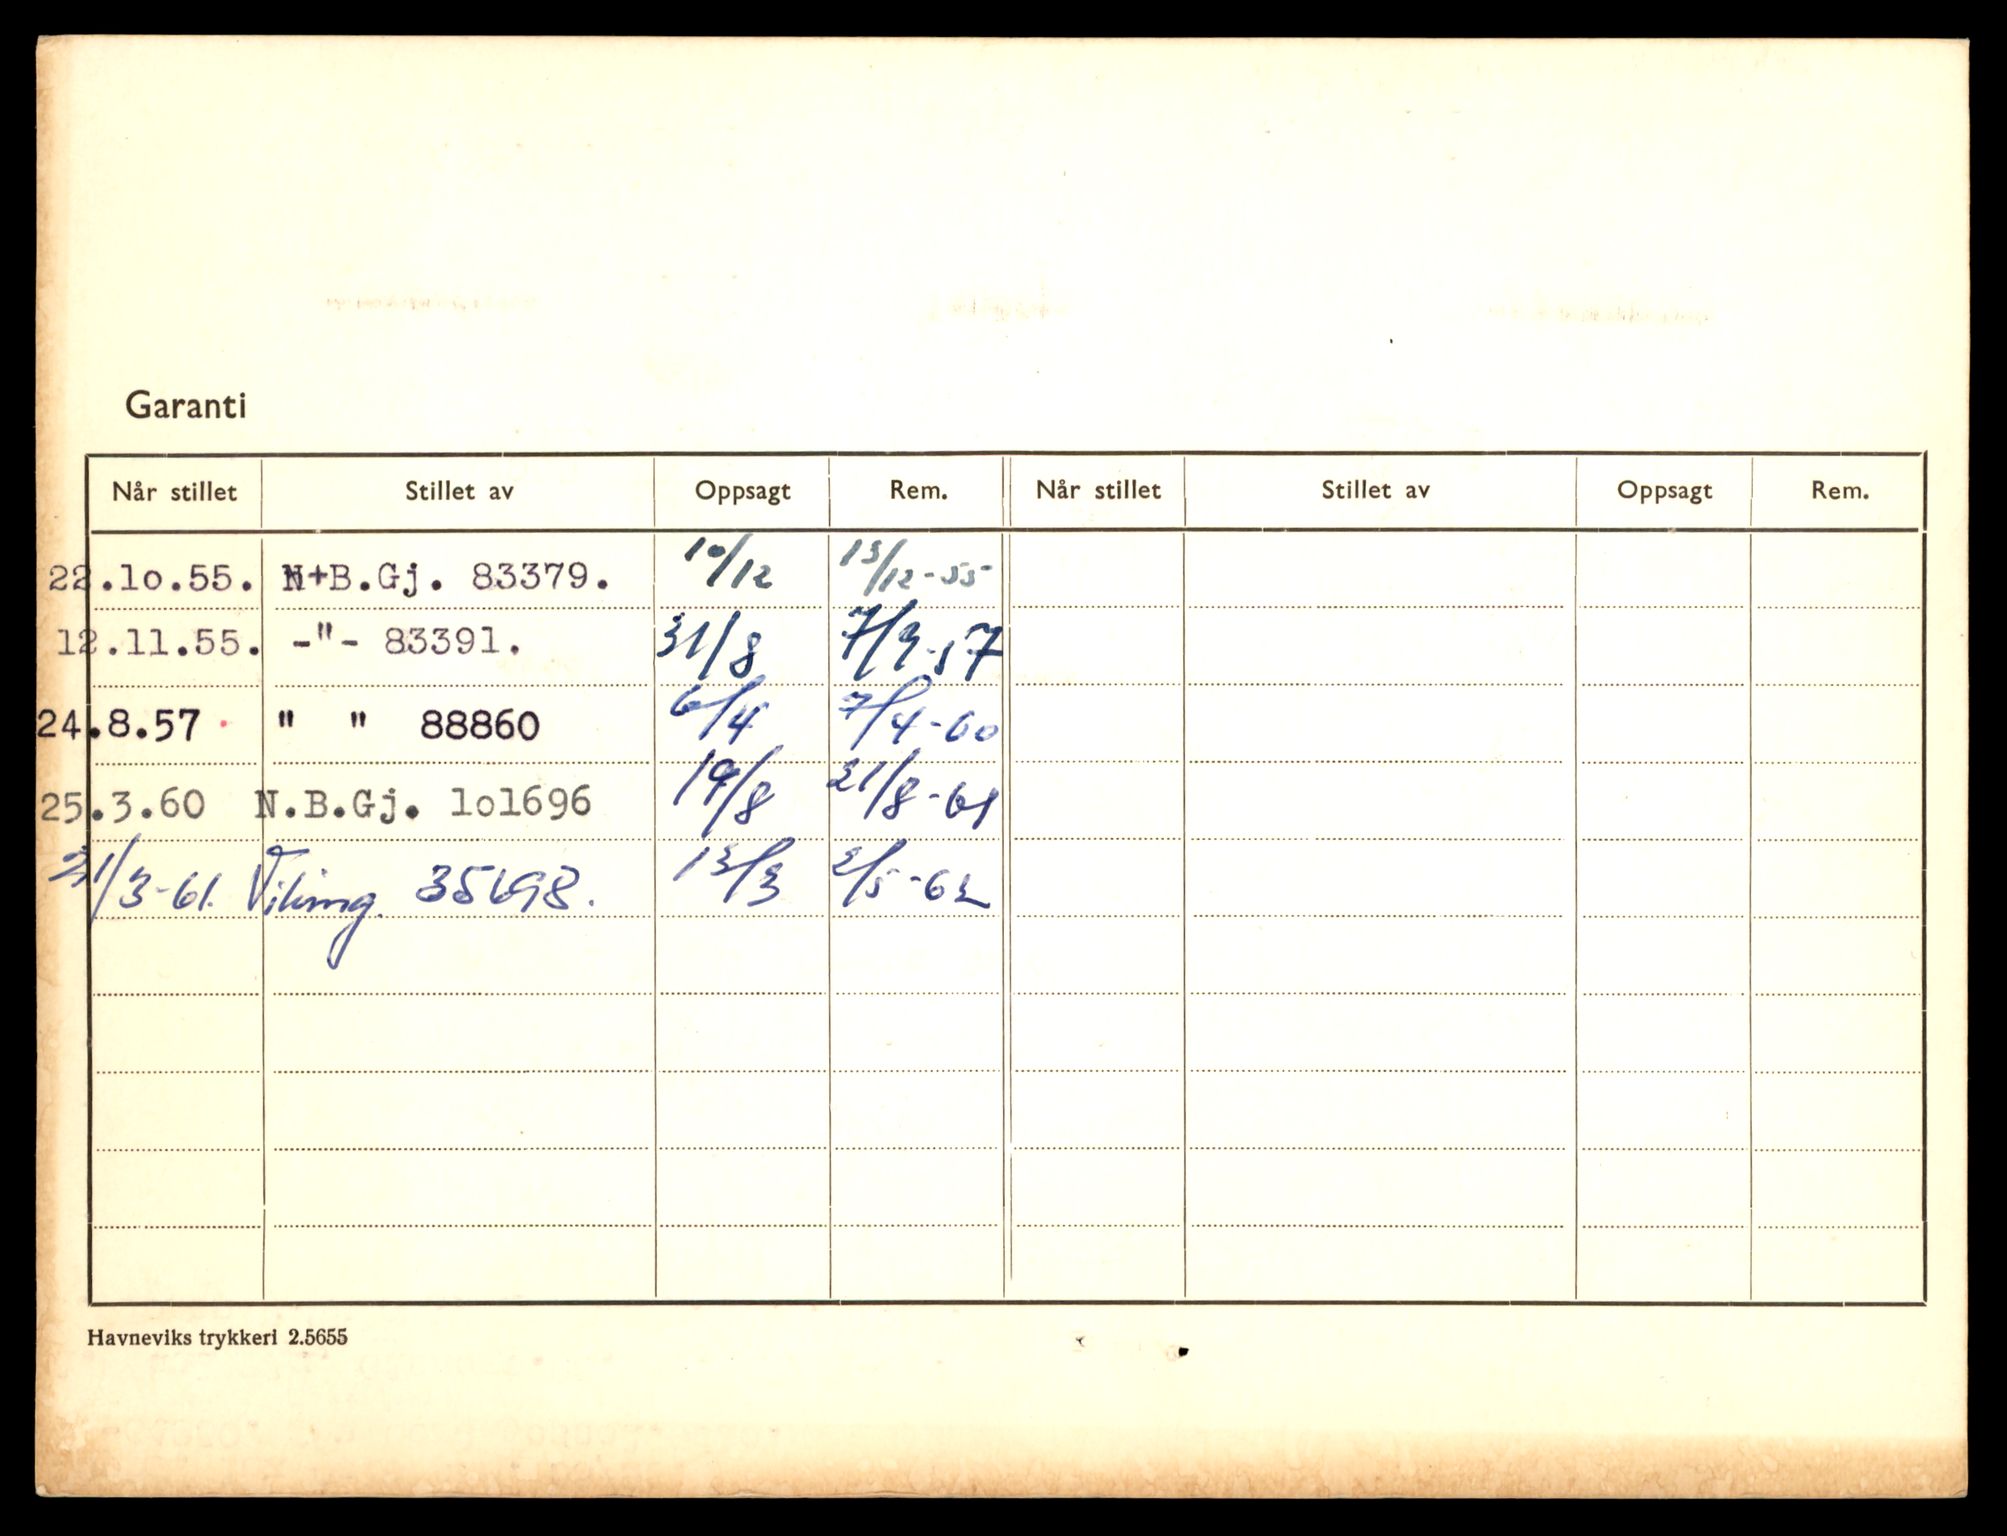 Garanti
Når stillet Stillet av Oppsagt Rem. Når stillet Stillet av Oppsagt Rem.
22.lo.55. N+B.Gj. 83379. 10/12 13/12-55
12.11.55. -"- 83391. 31/8 7/9-57
24.8.57 " " 88860 6/4 7/4-60
25.3.60 N.B.Gj. lol696 19/8 21/8-61
21/3-61. Viking. 35698. 13/3 2/5-62
Havneviks trykkeri 2.5655